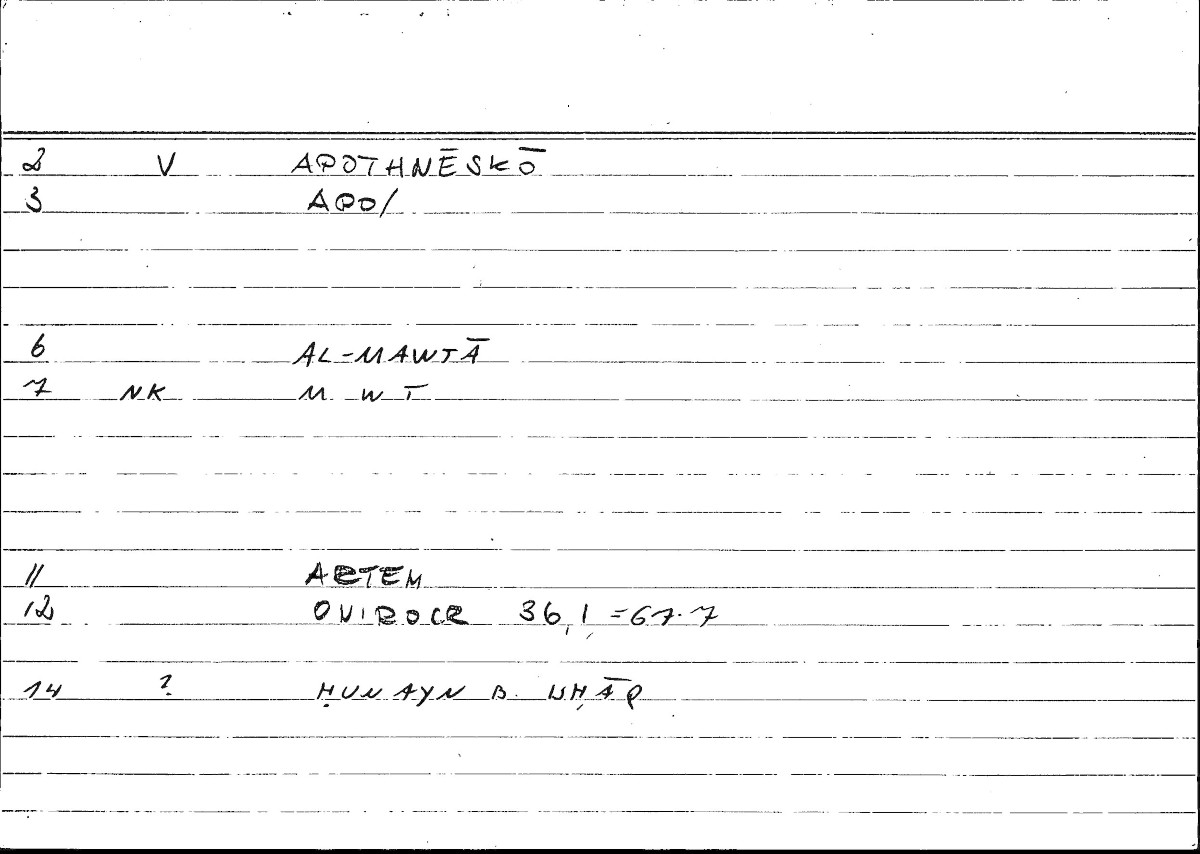 2 V APOTHNĒSKŌ
3 APO/
6 AL-MAWTĀ
7 NK M W T
11 ARTEM
12 ONIROCR 36,1 =67.7
14 ? ḤUNAYN B. ISḤĀQ